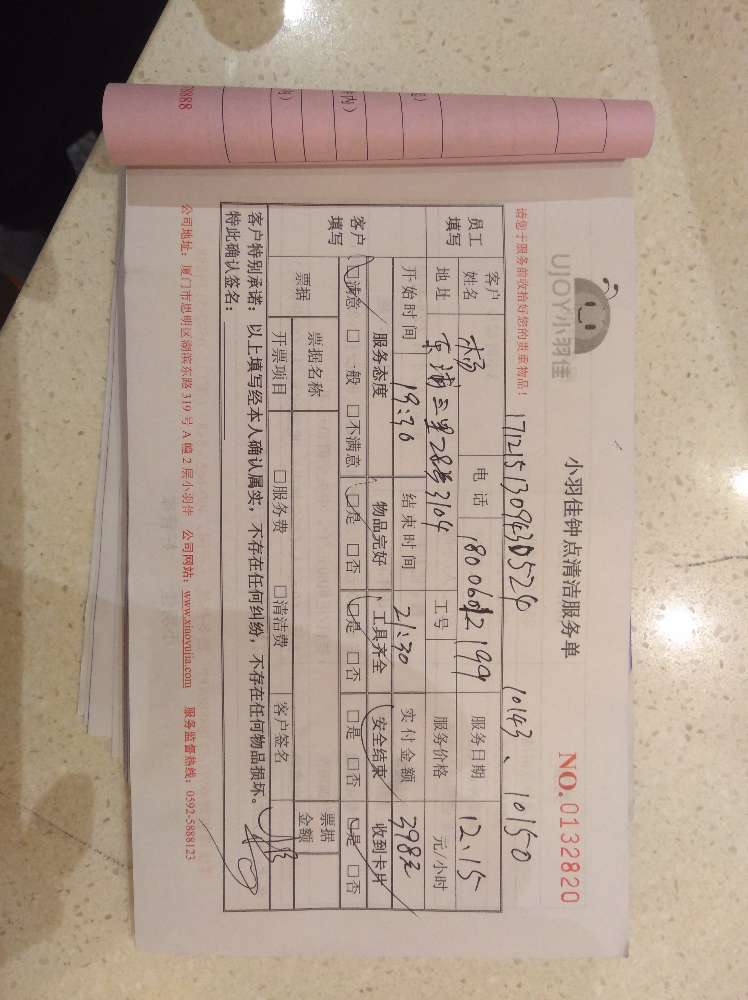 UJOY小羽佳
小羽佳钟点清洁服务单
NO.0132820
请您于服务前收拾好您的贵重物品！
1712151309430524
10143、10150
员工填写
客户姓名 杨 电话 18006012199 服务日期 12.15
地址 东浦三里28号3104 工号 服务价格 元/小时
开始时间 19:30 结束时间 21:30 实付金额 398元
客户填写
服务态度 物品完好 工具齐全 安全结束 收到卡片
□满意 □一般 □不满意 □是 □否 □是 □否 □是 □否 □是 □否
票据 票据名称 票据金额
开票项目 □服务费 □清洁费 客户签名
客户特别承诺：以上填写经本人确认属实，不存在任何纠纷，不存在任何物品损坏。
特此确认签名：
公司地址：厦门市思明区湖滨东路319号A幢2层小羽佳 公司网站：www.xiaoyujia.com 服务监督热线：0592-5888123